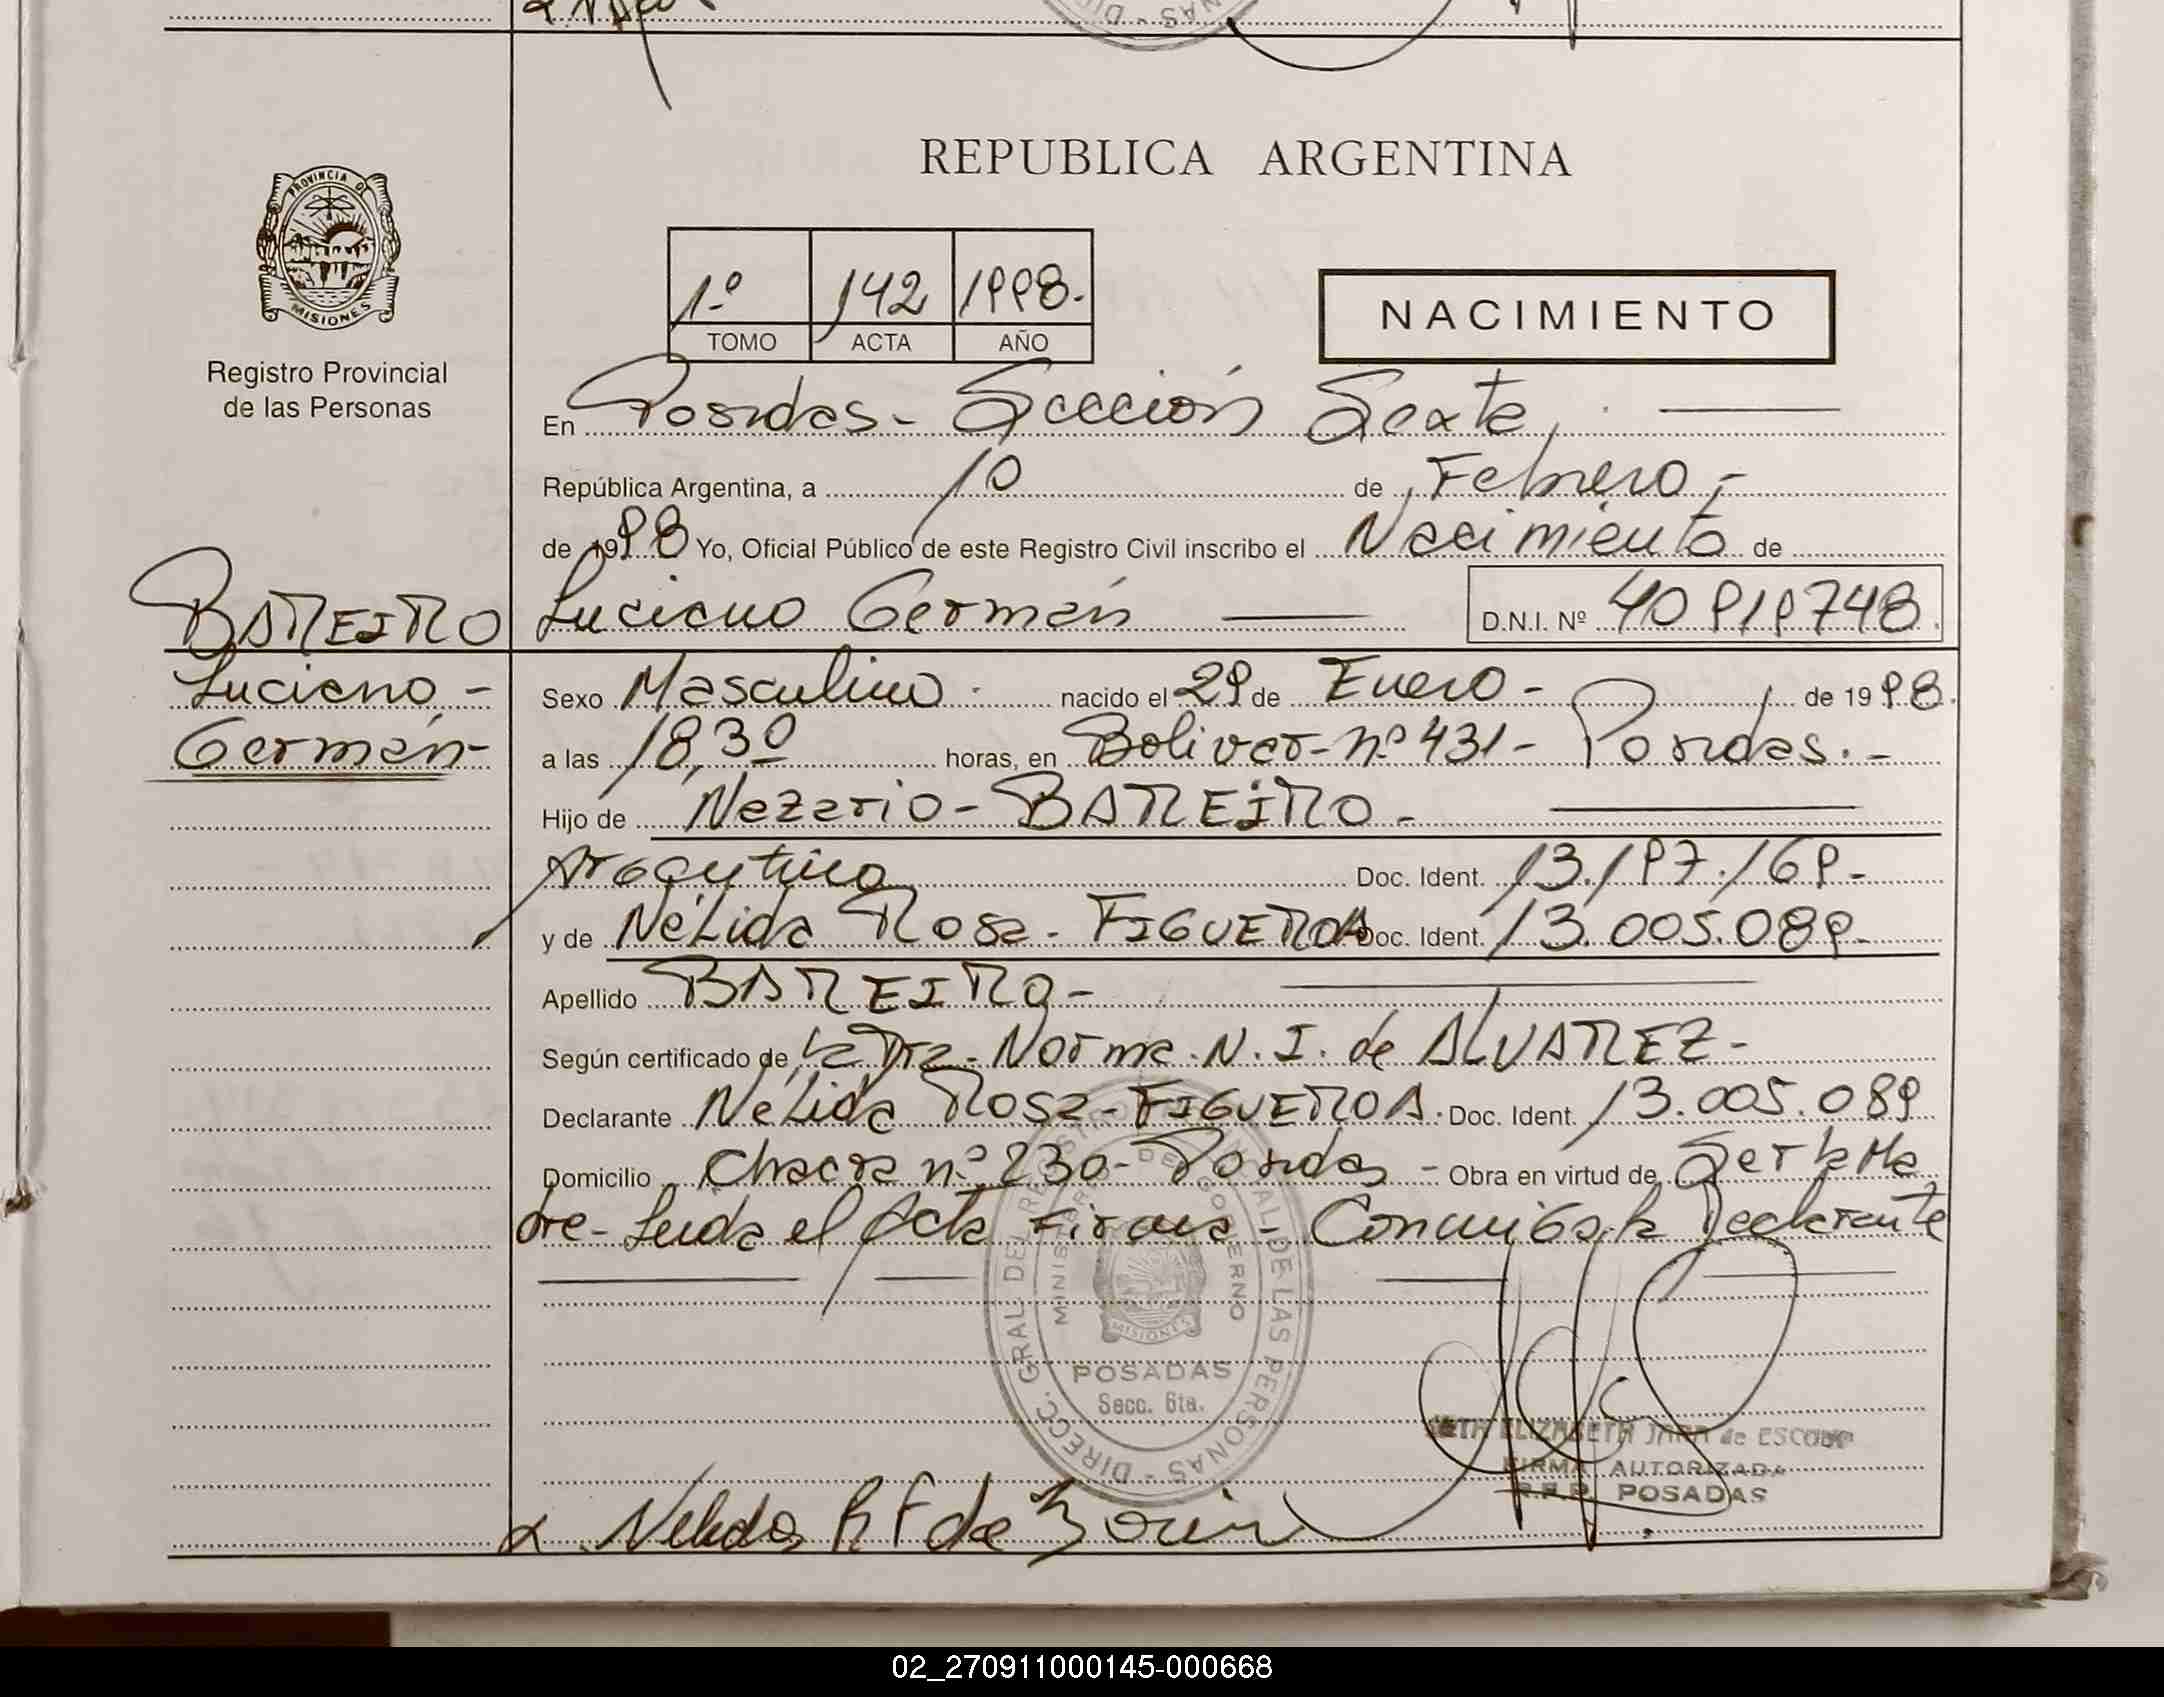 REPUBLICA ARGENTINA
PROVINCIA DE
MISIONES
Registro Provincial
de las Personas
1º 142 1998.-
TOMO ACTA AÑO
NACIMIENTO
En Posadas - Sección Sexta,
República Argentina, a 10 de Febrero,-
de 1998 Yo, Oficial Público de este Registro Civil inscribo el Nacimiento de
BAREIRO Luciano Germán D.N.I. Nº 40919748.
Luciano -
Germán -
Sexo Masculino. nacido el 29 de Enero - de 1998.
a las 18,30 horas, en Bolivar - nº 431 - Posadas. -
Hijo de Nazario - BAREIRO -
Argentino Doc. Ident. 13.197.169.-
y de Nélida Rosa - FIGUEROA Doc. Ident. 13.005.089.-
Apellido BAREIRO -
Según certificado de la Dra. Norma. N. I. de ALVAREZ -
Declarante Nélida Rosa - FIGUEROA. Doc. Ident. 13.005.089
Domicilio Chacra nº 230 - Posadas - Obra en virtud de Ser la Ma
dre - Leida el Acta Firma - Conmigo la Declarante
DIRECC. GRAL. DEL REGISTRO PROVINCIAL DE LAS PERSONAS -
MINISTERIO DE GOBIERNO
MISIONES
POSADAS
Secc. 6ta.
ELIZABETH JARA de
FIRMA AUTORIZADA
R.P.P. POSADAS
Nelida R F de
02_270911000145-000668